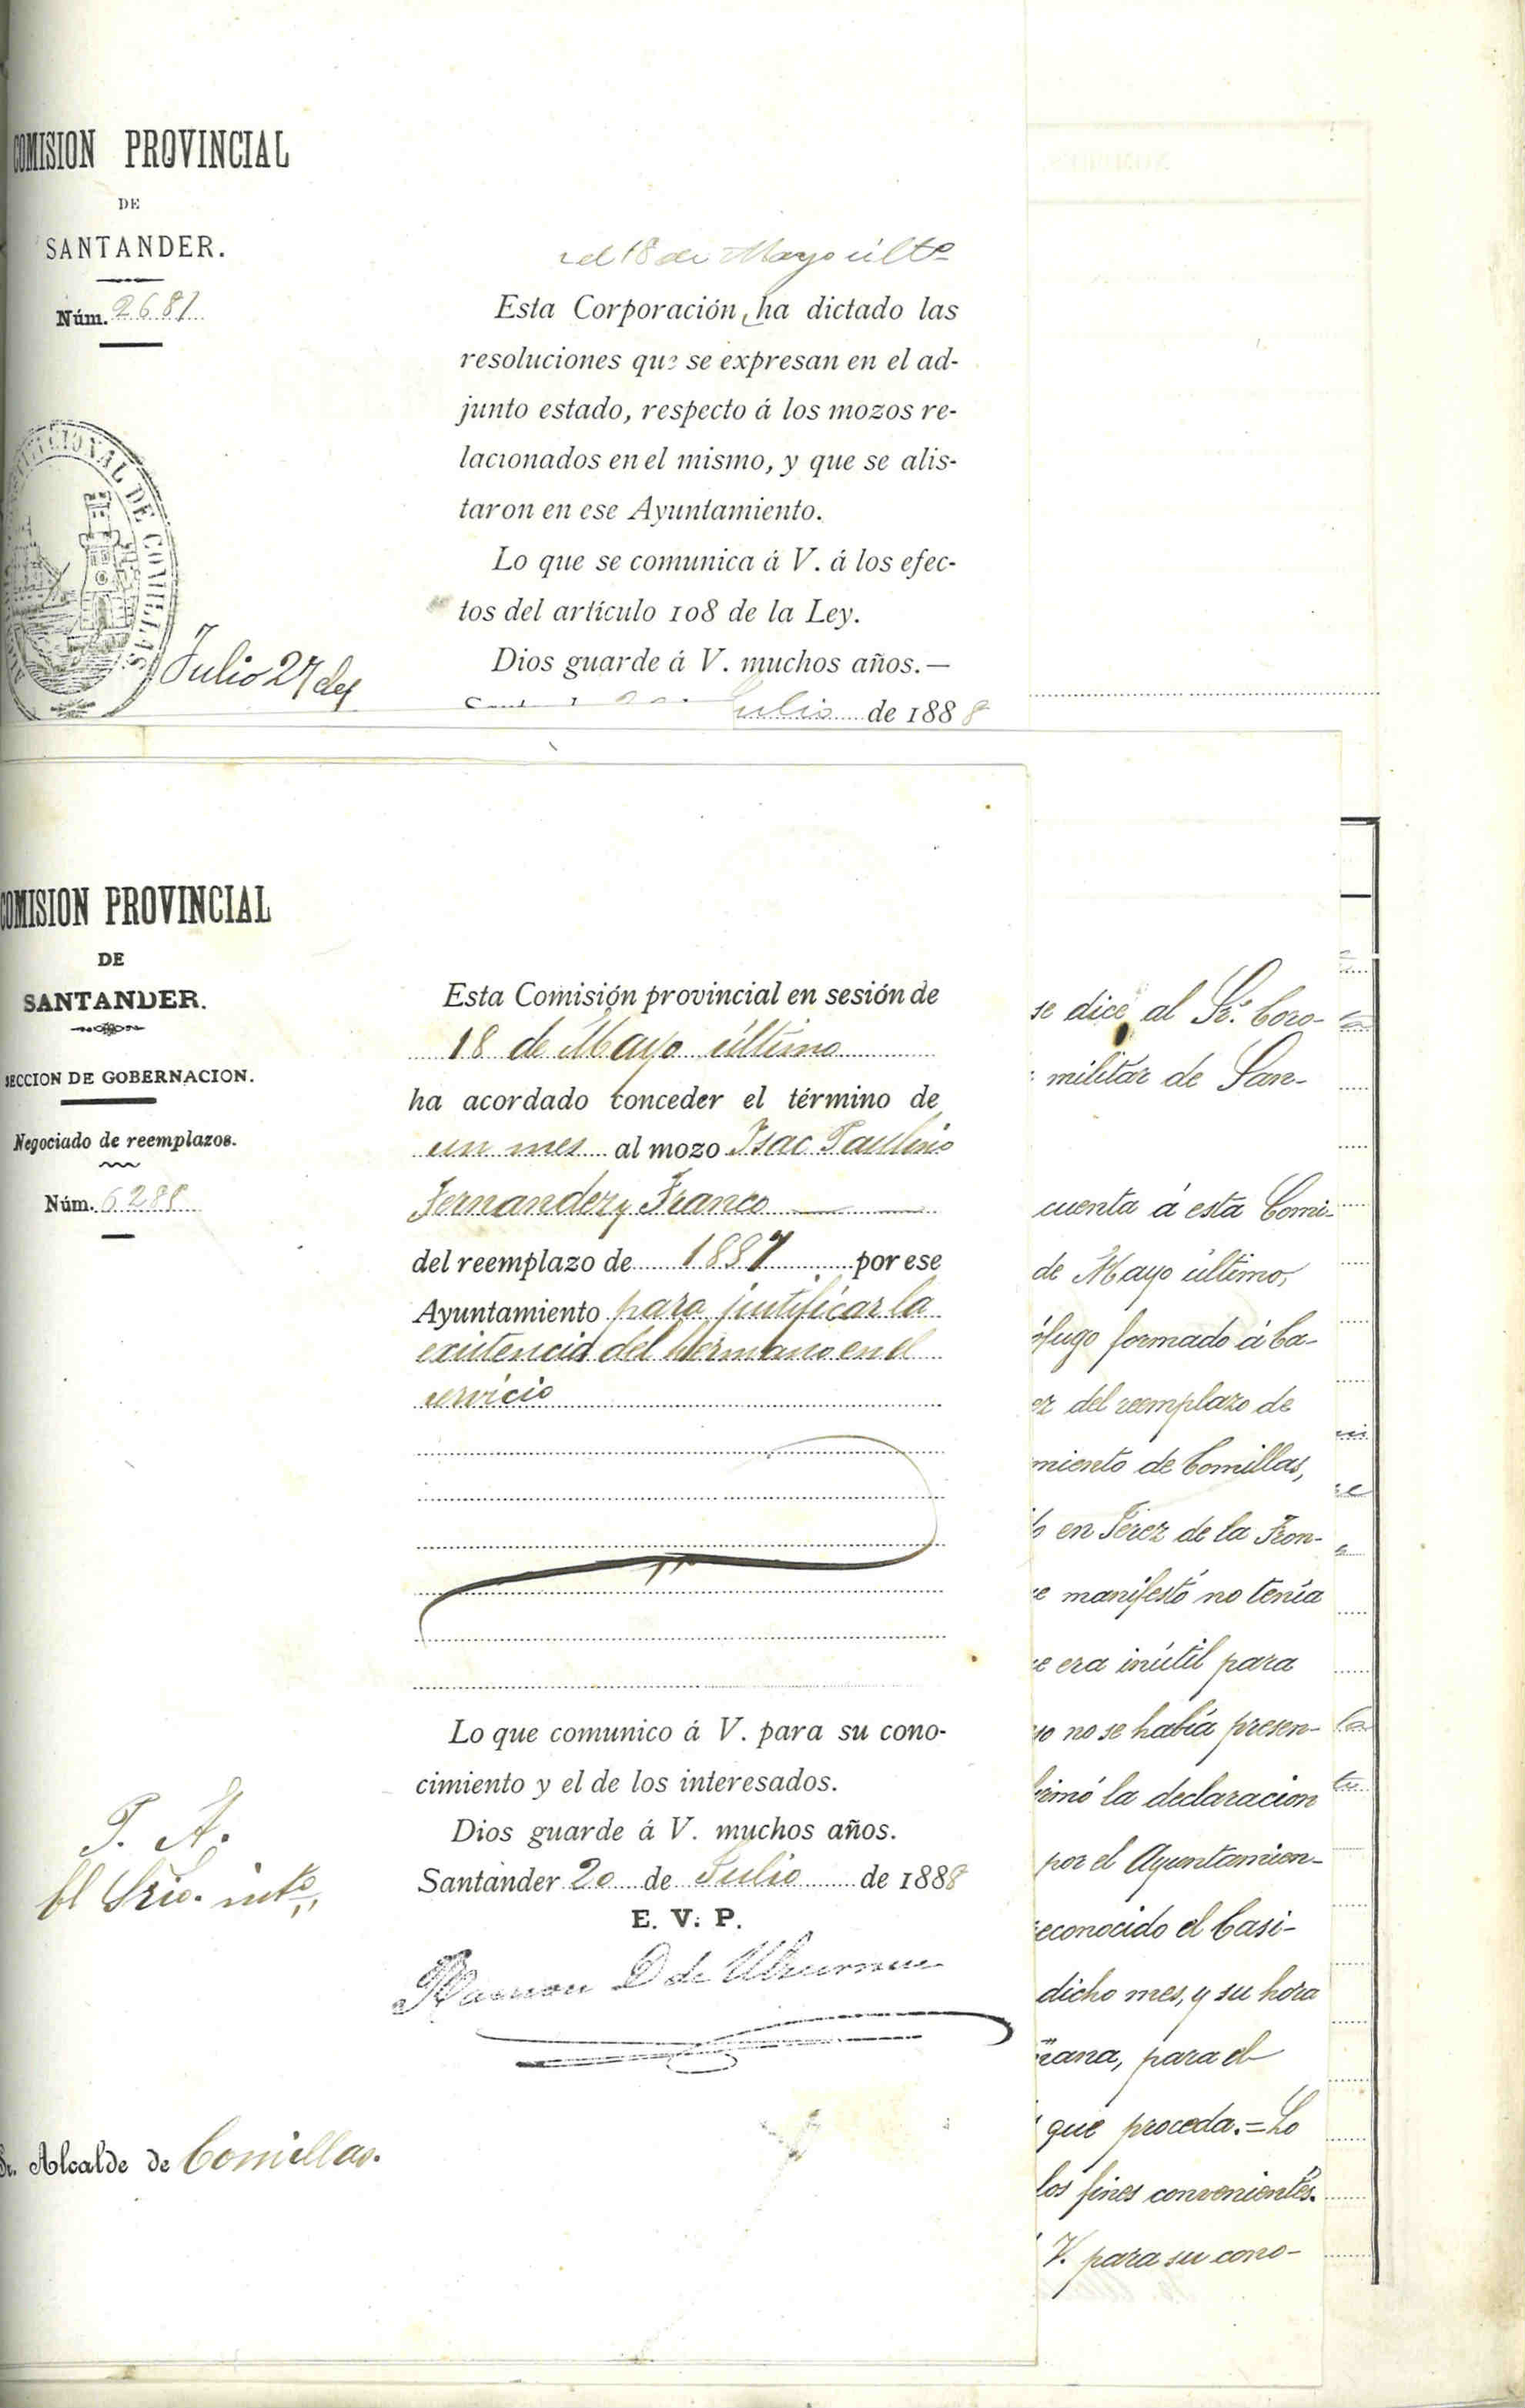 COMISION PROVINCIAL
DE
SANTANDER.
Núm. 2681
el 18 de Mayo últº
Esta Corporación ha dictado las
resoluciones que se expresan en el ad-
junto estado, respecto á los mozos re-
lacionados en el mismo, y que se alis-
taron en ese Ayuntamiento.
Lo que se comunica á V. á los efec-
tos del artículo 108 de la Ley.
Dios guarde á V. muchos años.—
Julio de 1888
DE COMILLAS
Julio 27
COMISION PROVINCIAL
DE
SANTANDER.
SECCION DE GOBERNACION.
Negociado de reemplazos.
Núm. 6288
Esta Comisión provincial en sesión de
18 de Mayo último
ha acordado conceder el término de
un mes al mozo Isac Paulino
Fernandez y Franco
del reemplazo de 1887 por ese
Ayuntamiento para justificar la
existencia del hermano en el
servicio
Lo que comunico á V. para su cono-
cimiento y el de los interesados.
Dios guarde á V. muchos años.
Santander 20 de Julio de 1888
E. V. P.
P. A.
El Srio. intº,
Sr. Alcalde de Comillas.
se dice al Sr. Coro-
militar de San-
cuenta á esta Comi-
de Mayo último,
ófugo formado á Ca-
ez del reemplazo de
miento de Comillas,
en Jerez de la Fron-
e manifestó no tenía
e era inútil para
no se había presen-
irmó la declaracion
por el Ayuntamien-
econocido el Casi-
dicho mes, y su hora
ñana, para el
que proceda.=Lo
los fines convenientes.
V. para su cono-